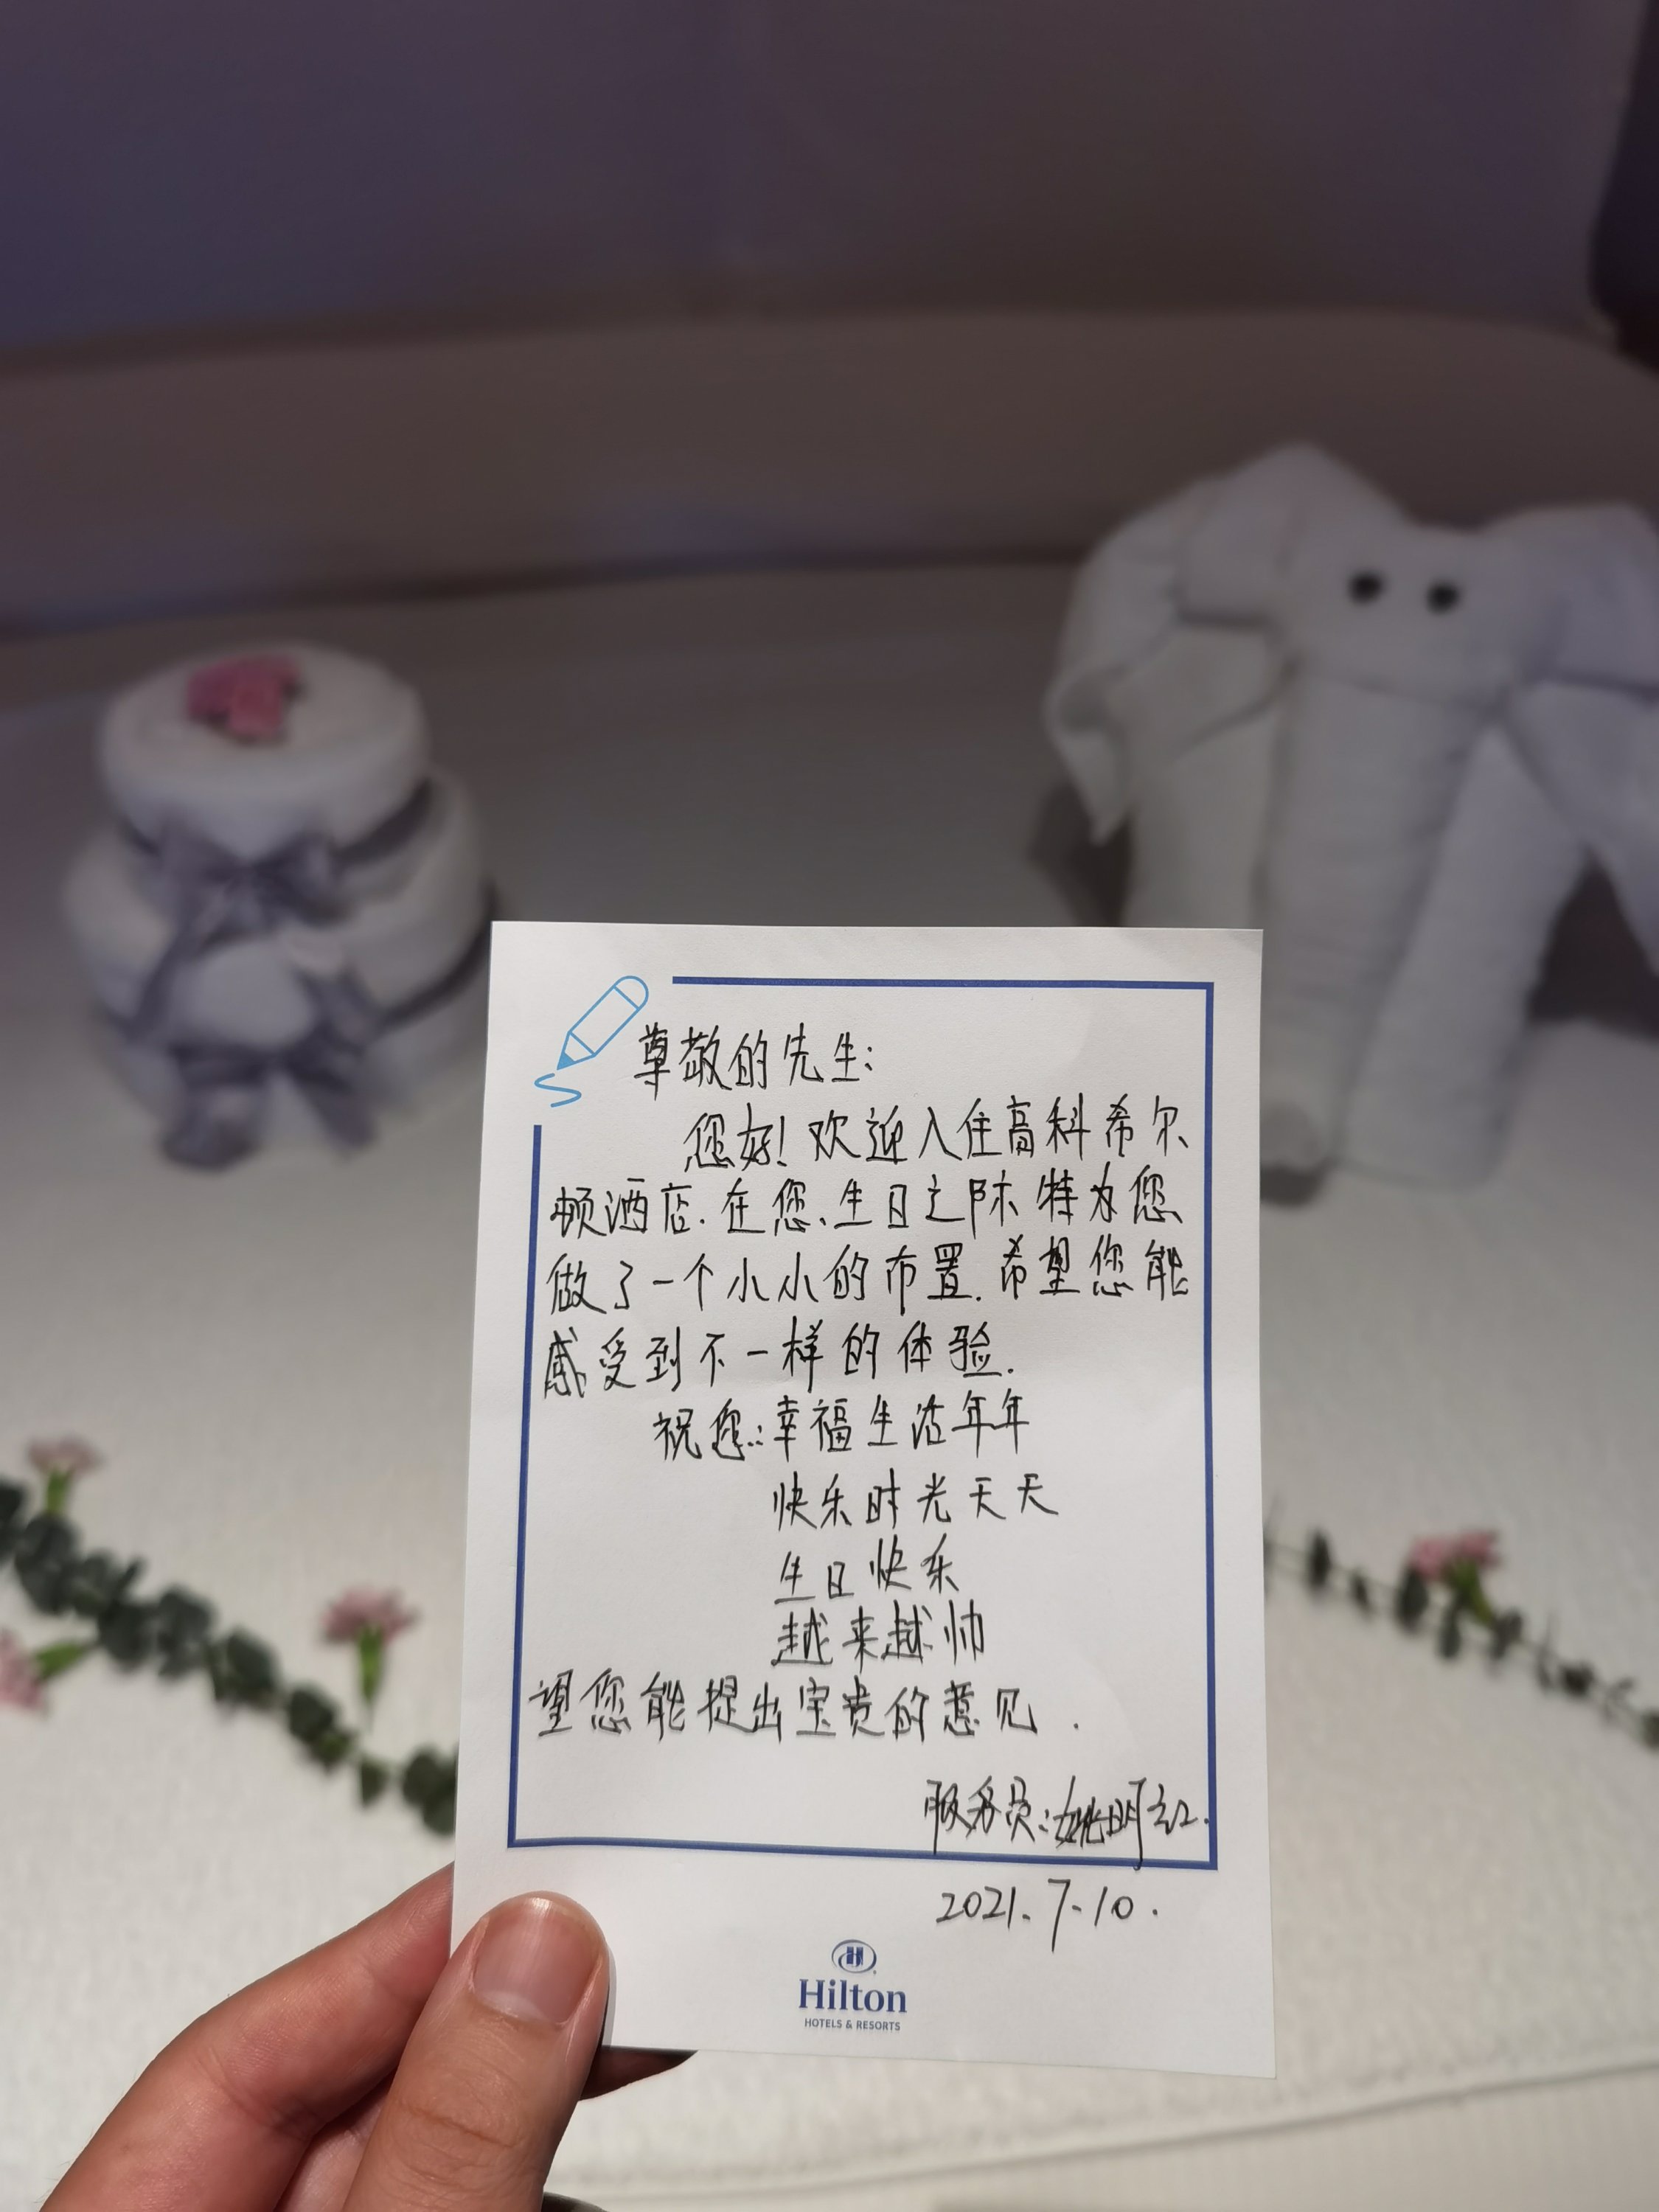 尊敬的先生:
您好!欢迎入住高科希尔
顿酒店.在您、生日之际特为您
做了一个小小的布置.希望您能
感受到不一样的体验.
祝您:幸福生活年年
快乐时光天天
生日快乐
越来越帅
望您能提出宝贵的意见.
服务员:姚明红.
2021.7-10.
Hilton
HOTELS & RESORTS